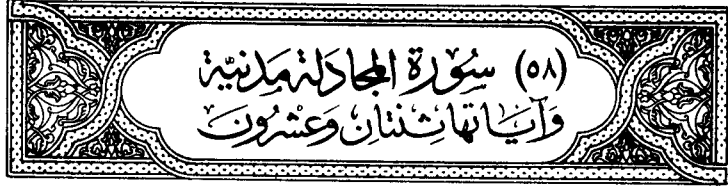 (٥٨) سُوْرَة المجَادَلة مَدنيَّة
وَآيَاتها ثِنتَانِ وَعشْرُونَ